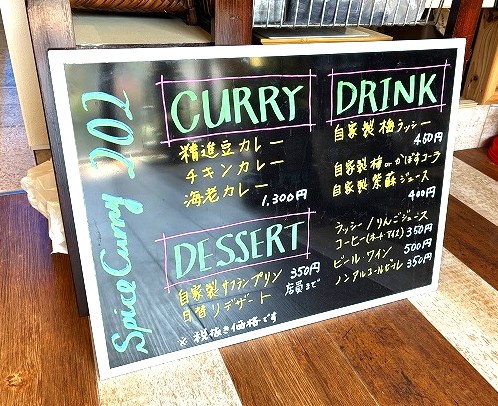 Spice Curry 202
CURRY
精進豆カレー
チキンカレー
海老カレー
1,300円
DESSERT
自家製サフランプリン 350円
日替りデザート 店員まで
※税抜き価格です
DRINK
自家製梅ラッシー
450円
自家製梅orかぼすコーラ
自家製紫蘇ジュース
400円
ラッシー/りんごジュース
コーヒー(ホットアイス) 350円
ビール・ワイン 500円
ノンアルコールビール 350円